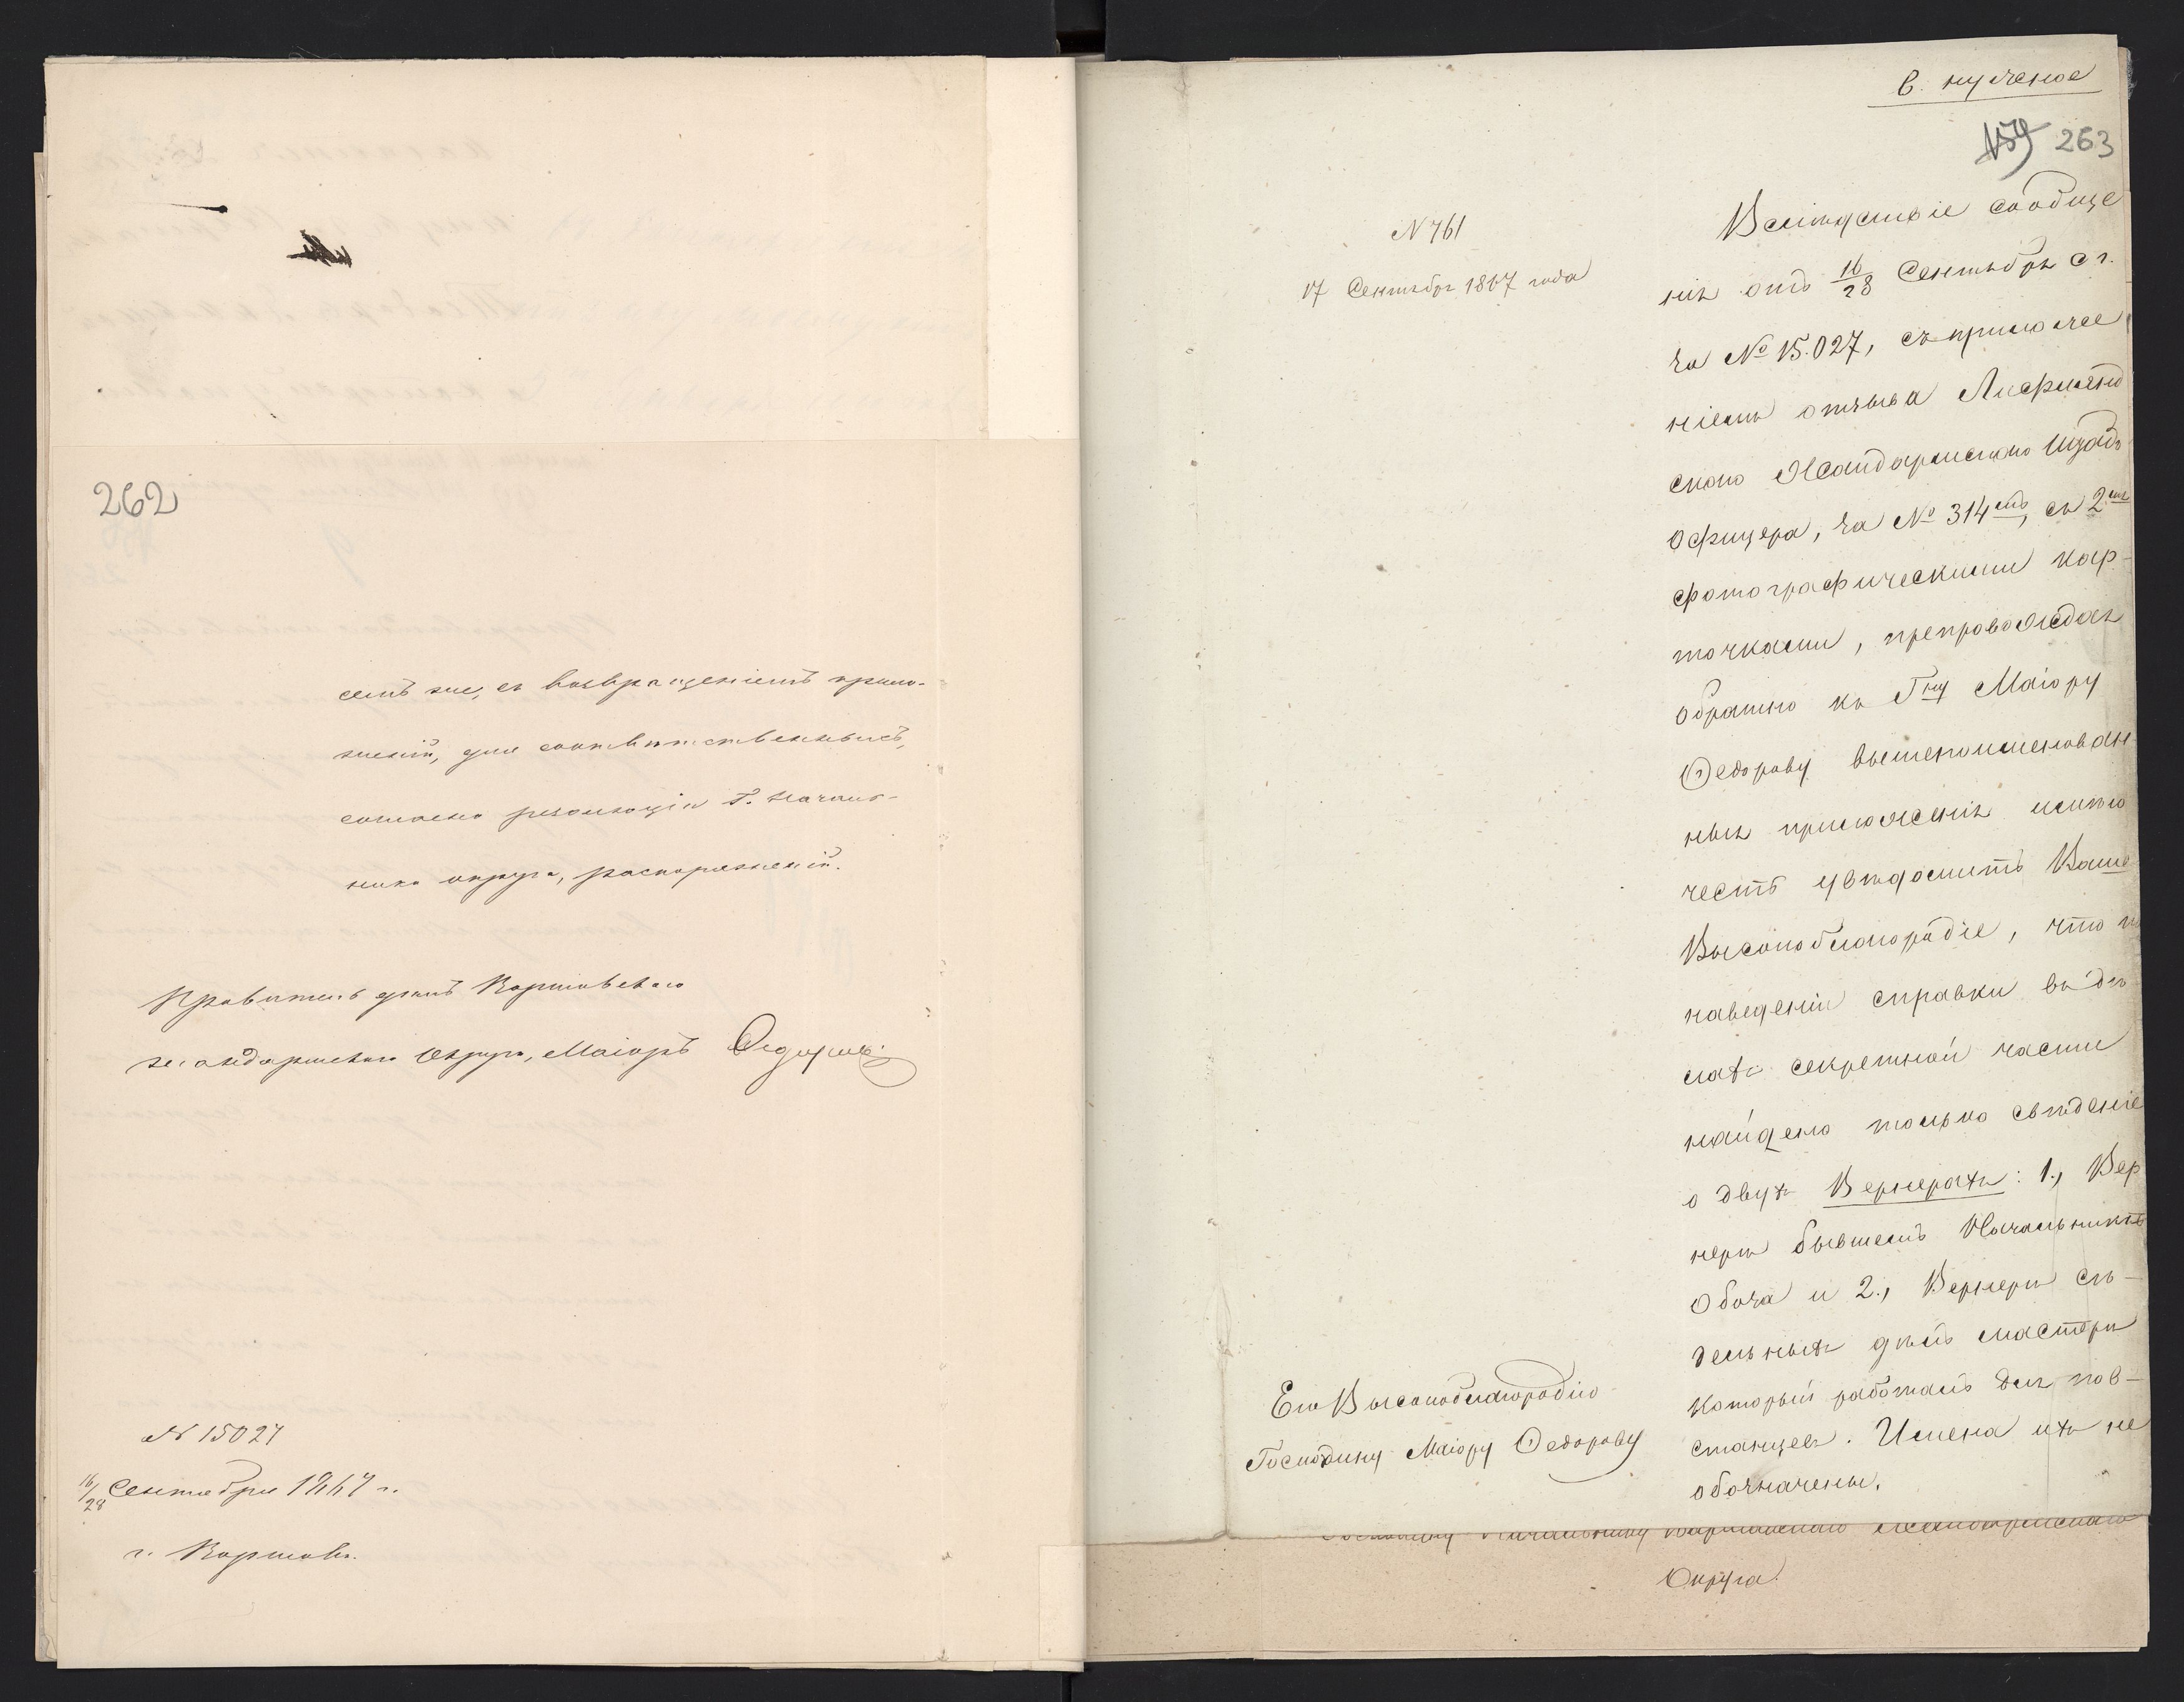 262
семъ же, съ возвращеніемъ прило-
женій, для соотвѣтственныхъ,
согласно резолюціи Г. Началь-
ника округа, распоряженій.
Правитель дѣлъ Варшавскаго
жандармскаго Округа, Маіоръ Ѳедоровъ
№ 15027
16/28 Сентября 1867 г.
г. Варшава.
В. нужное
159 263
N 761
17 Сентября 1867 года
Вслѣдствіе сообще
нія отъ 16/28 Сентября с г.
за № 15.027, съ приложе
ніемъ отзыва Лифлянд
скаго Жандармскаго Штабъ
Офицера, за № 314мъ, съ 2мя
фотографическими кар-
точками, препровождая
обратно къ Гну Маіору
Ѳедорову вышепоименован
ныя приложенія имѣю
честь увѣдомить Ваше
Высокоблагородіе, что по
наведеніи справки въ дѣ
лахъ секретной части
найдено только свѣденіе
о двухъ Вернерахъ: 1., Вер
неръ бывшемъ Начальникѣ
Обоза и 2., Вернеръ сѣ-
дельныхъ дѣлъ мастеръ
который работалъ для пов-
станцевъ. Имена ихъ не
обозначены.
Его Высокоблагородію
Господину Маіору Ѳедорову
Господину Начальнику Варшавскаго Жандармскаго
Округа.